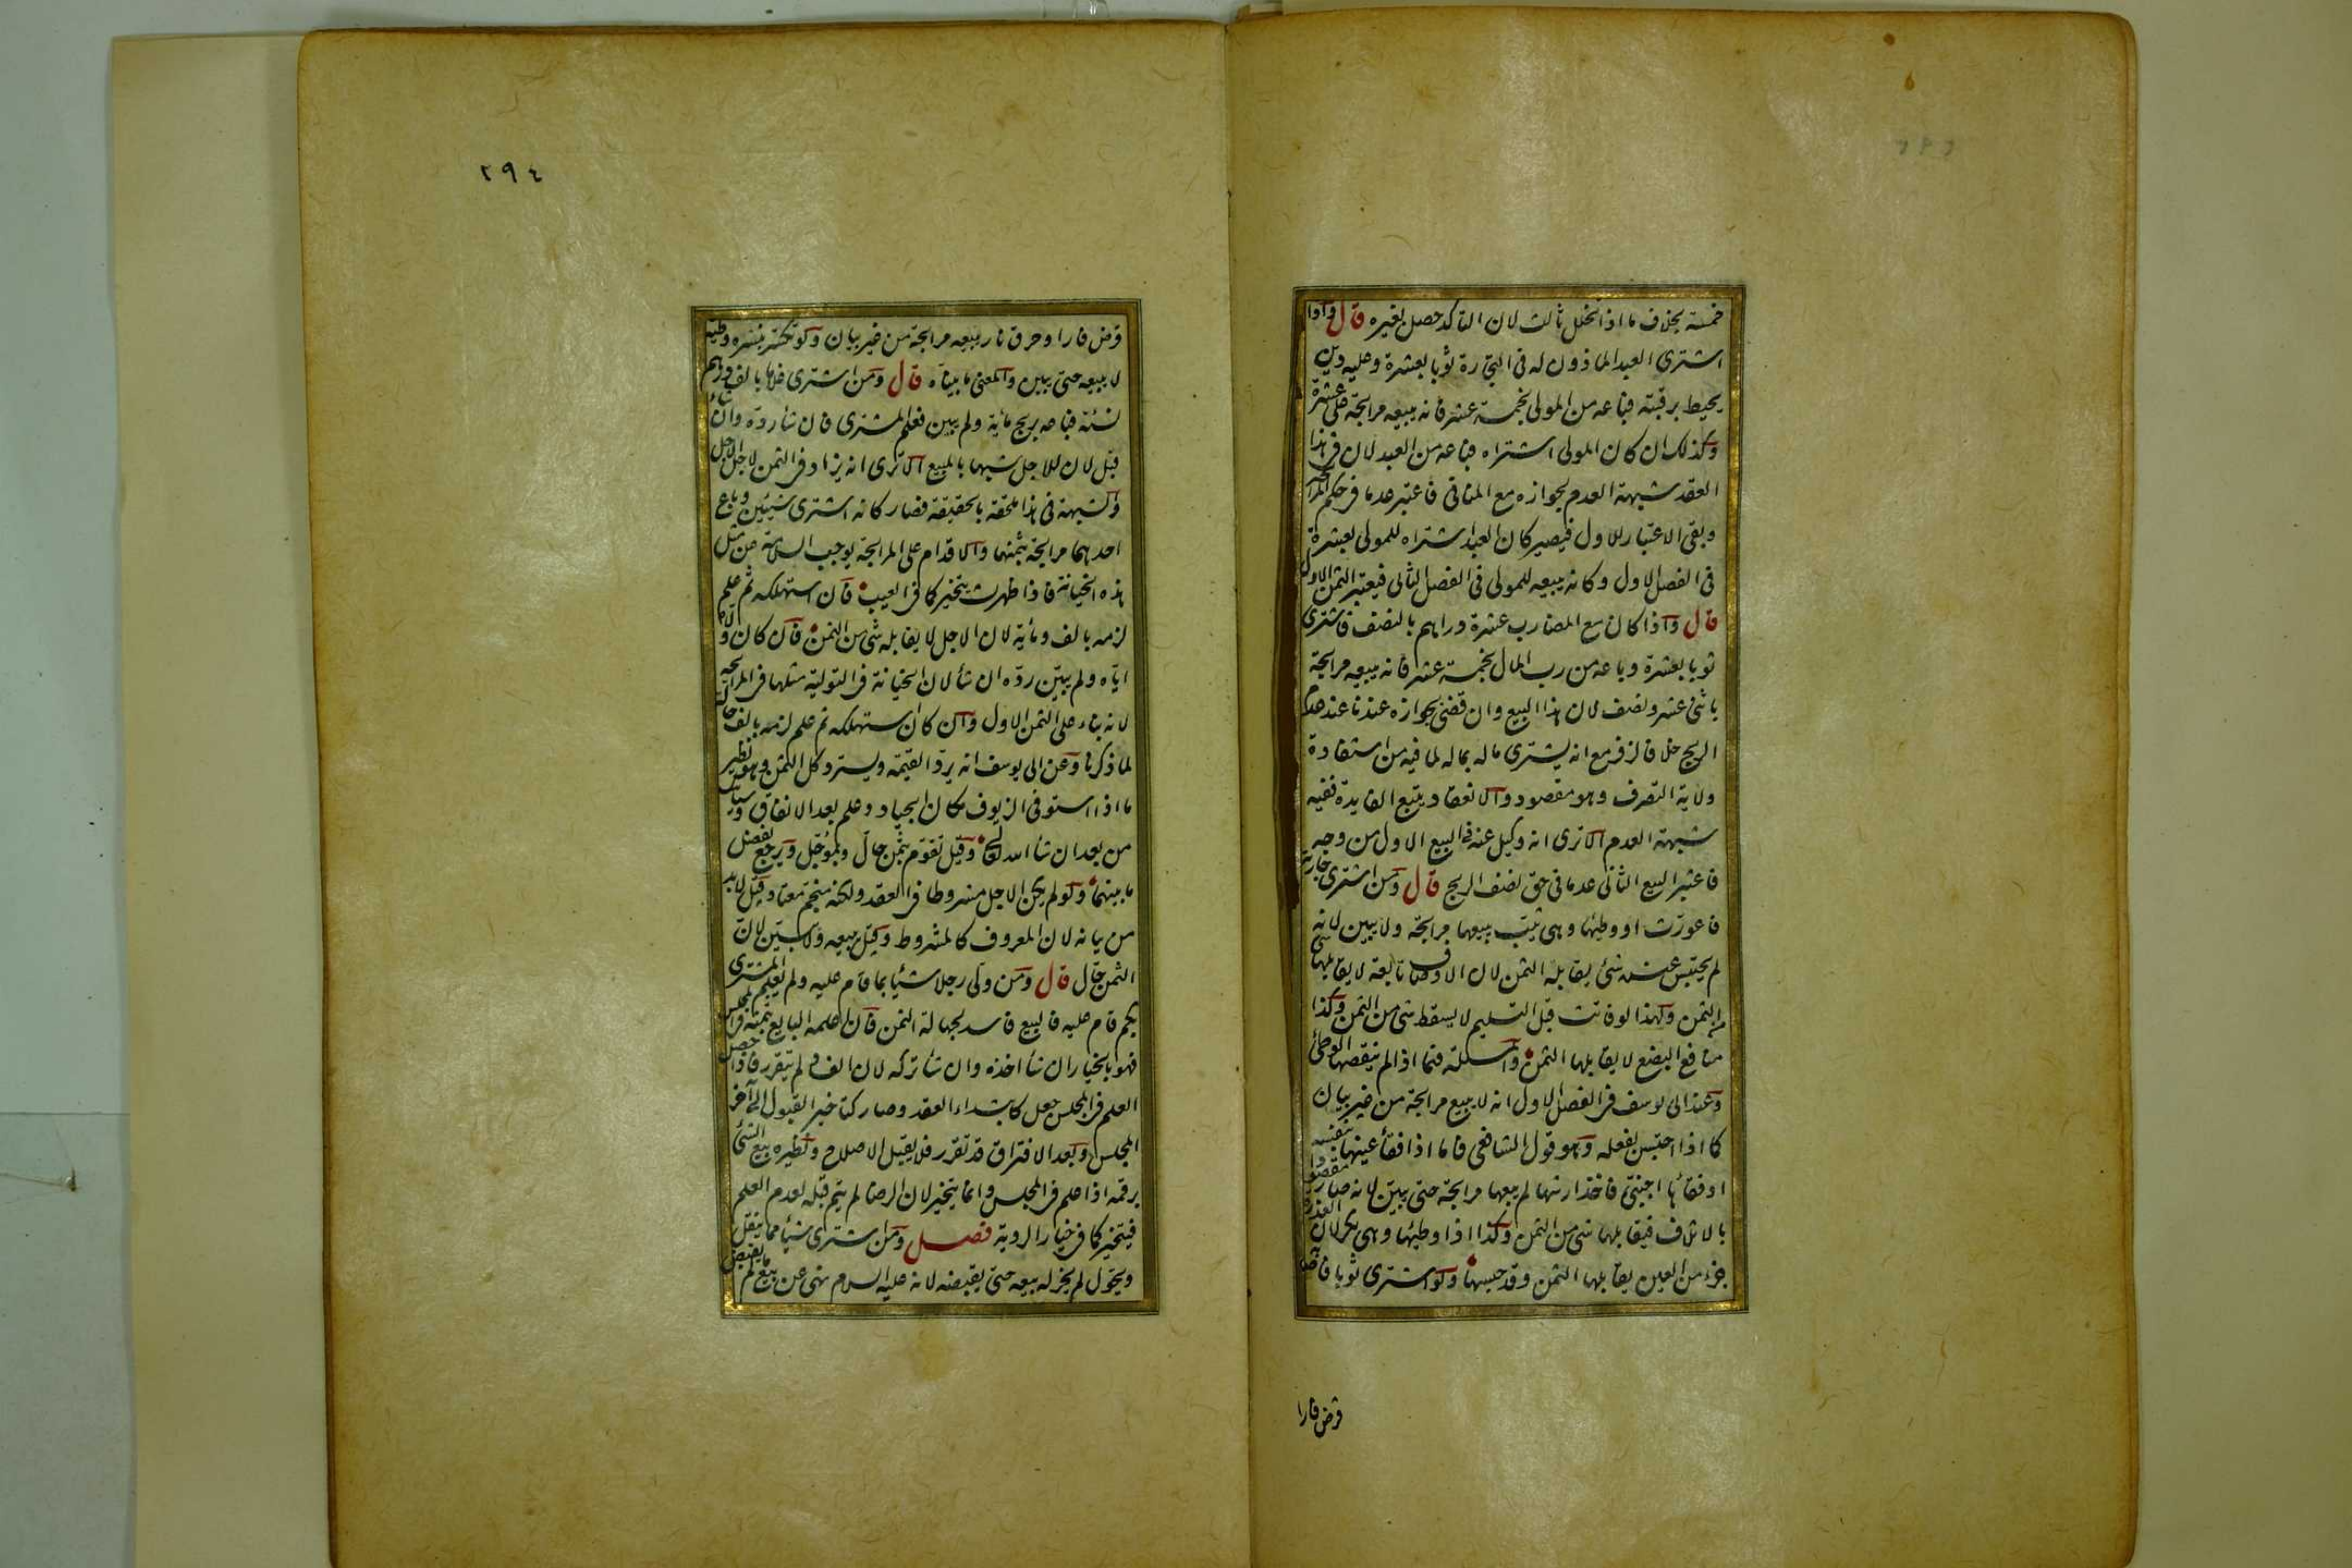 خمسة بخلاف ما اذا تخلل ثالث لان التاكد حصل بغيره قال واذا
اشترى العبد الماذون له فى التجارة ثوبا بعشرة وعليه دين
يحيط برقبته فباعه من المولى بخمسة عشر فانه يبيعه مرابحة على عشرة
وكذلك ان كان المولى اشتراه فباعه من العبد لان فى هذا
العقد شبهة العدم بجوازه مع المنافى فاعتبر عدما فى حكم المرابحة
وبقى الاعتبار للاول فيصير كان العبد اشتراه للمولى بعشرة
فى الفصل الاول وكانه يبيعه للمولى فى الفصل الثانى فيعتبر الثمن الاول
قال واذا كان مع المضارب عشرة دراهم بالنصف فاشترى
ثوبا بعشرة وباعه من رب المال بخمسة عشر فانه يبيعه مرابحة
باثنى عشر ونصف لان هذا البيع وان قضى بجوازه عندنا عند عدم
الربح خلافا لزفر مع انه يشترى ماله بماله لما فيه من استفادة
ولاية التصرف وهو مقصود والانعقاد يتبع الفايدة ففيه
شبهة العدم الا ترى انه وكيل عنه فى البيع الاول من وجه
فاعتبر البيع الثانى عدما فى حق نصف الربح قال ومن اشترى جارية
فاعورت او وطيها وهى ثيب يبيعها مرابحة ولا يبين لانه
لم يحتبس عنده شئ يقابله الثمن لان الاوصاف تابعة لا يقابلها شئ
من الثمن ولهذا لو فاتت قبل التسليم لا يسقط شئ من الثمن وكذا
منافع البضع لا يقابلها الثمن والمسئلة فيما اذا لم ينقصها الوطئ
وعند ابى يوسف فى الفصل الاول انه لا يبيع مرابحة من غير بيان
كما اذا احتبس بفعله وهو قول الشافعى فاما اذا فقأ عينها بنفسه
او فقأها اجنبى فاخذ ارشها لم يبعها مرابحة حتى يبين لانه صار مقصودا
بالاتلاف فيقابلها شئ من الثمن وكذا اذا وطيها وهى بكر لان العذرة
جزء من العين يقابلها الثمن وقد حبسها ولو اشترى ثوبا فاصابه
قرض فارا
٢٩٤
قرض فارا وحرق نار يبيعه مرابحة من غير بيان ولو تكسر بنشره وطيه
لا يبيعه حتى يبين والمعنى ما بيناه قال ومن اشترى غلاما بالف درهم
نسئة فباعه بربح مأية ولم يبين فعلم المشترى فان شأ رده وان شأ
قبل لان للاجل شبها بالمبيع الا ترى انه يزاد فى الثمن لاجل الاجل
والشبهة فى هذا ملحقة بالحقيقة فصار كانه اشترى شيئين وباع
احدهما مرابحة بثمنهما والاقدام على المرابحة يوجب السلامة عن مثل
هذه الخيانة فاذا ظهرت يتخير كما فى العيب فان استهلكه ثم علم
لزمه بالف ومأية لان الاجل لا يقابله شئ من الثمن فان كان ولاه
اياه ولم يبين رده ان شأ لان الخيانة فى التولية مثلها فى المرابحة
لانه بناء على الثمن الاول وان كان استهلكه ثم علم لزمه بالف حالة
لما ذكرنا وعن ابى يوسف انه يرد القيمة ويسترد كل الثمن وهو نظير
ما اذا استوفى الزيوف مكان الجياد وعلم بعد الانفاق وسيأتيك
من بعد ان شأ الله تعالى وقيل تقوم بثمن حال وبمؤجل ويرجع بفضل
ما بينهما ولو لم يكن الاجل مشروطا فى العقد ولكنه منجم معتاد قيل لا بد
من بيانه لان المعروف كالمشروط وقيل يبيعه ولا يبين لان
الثمن حال قال ومن ولى رجلا شيأ بما قام عليه ولم يعلم المشترى
بكم قام عليه فالبيع فاسد لجهالة الثمن فان اعلمه البايع بثمنه فى المجلس
فهو بالخيار ان شأ اخذه وان شأ تركه لان الفساد لم يتقرر فاذا حصل
العلم فى المجلس جعل كابتداء العقد وصار كتاخير القبول الى آخر
المجلس وبعد الافتراق قد تقرر فلا يقبل الاصلاح ونظيره بيع الشئ
برقمه اذا علم فى المجلس وانما يتخير لان الرضا لم يتم قبله لعدم العلم
فيتخير كما فى خيار الروية فصل ومن اشترى شيأ مما ينقل
ويحول لم يجز له بيعه حتى يقبضه لانه عليه السلام نهى عن بيع ما لم يقبض